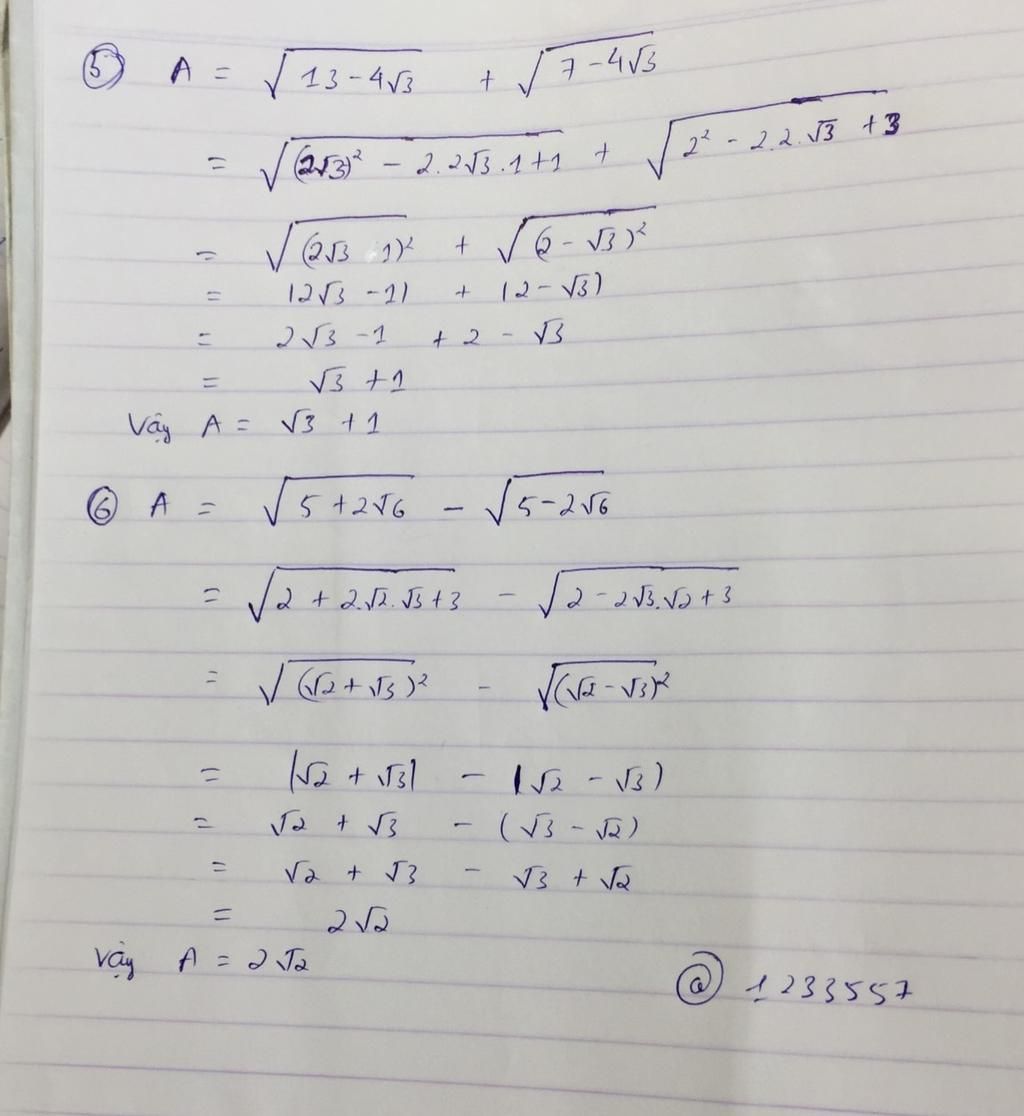 ⑤ A = √(13 - 4√3) + √(7 - 4√3)
= √((2√3)² - 2.2√3.1+1) + √(2² - 2.2.√3 + 3)
= √((2√3 1)²) + √((2 - √3)²)
= |2√3 - 1| + |2 - √3|
= 2√3 - 1 + 2 - √3
= √3 + 1
Vậy A = √3 + 1
⑥ A = √(5 + 2√6) - √(5 - 2√6)
= √(2 + 2.√2.√3 + 3) - √(2 - 2√3.√2 + 3)
= √((√2 + √3)²) - √((√2 - √3)²)
= |√2 + √3| - |√2 - √3|
= √2 + √3 - (√3 - √2)
= √2 + √3 - √3 + √2
= 2√2
Vậy A = 2√2
@ 1233557